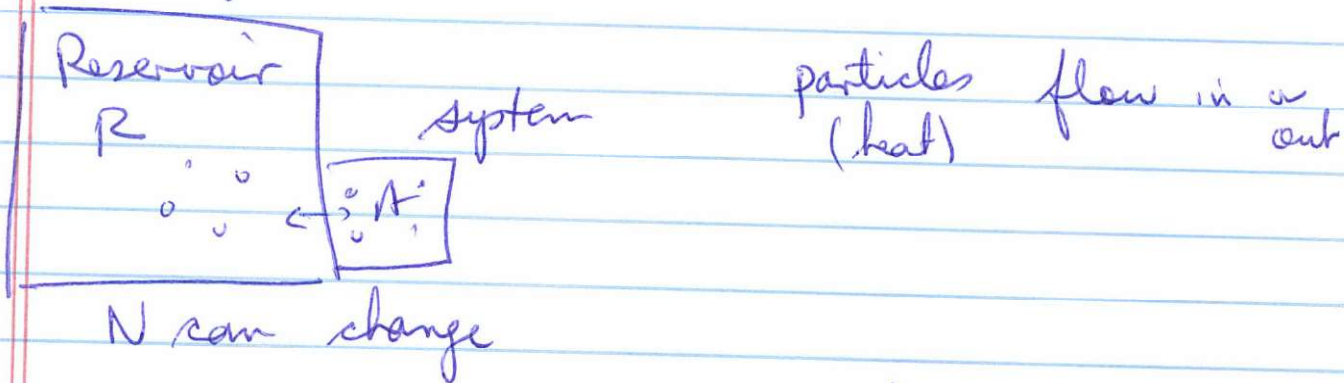 Reservoir
R
system
A
particles flow in or out
(heat)
N can change